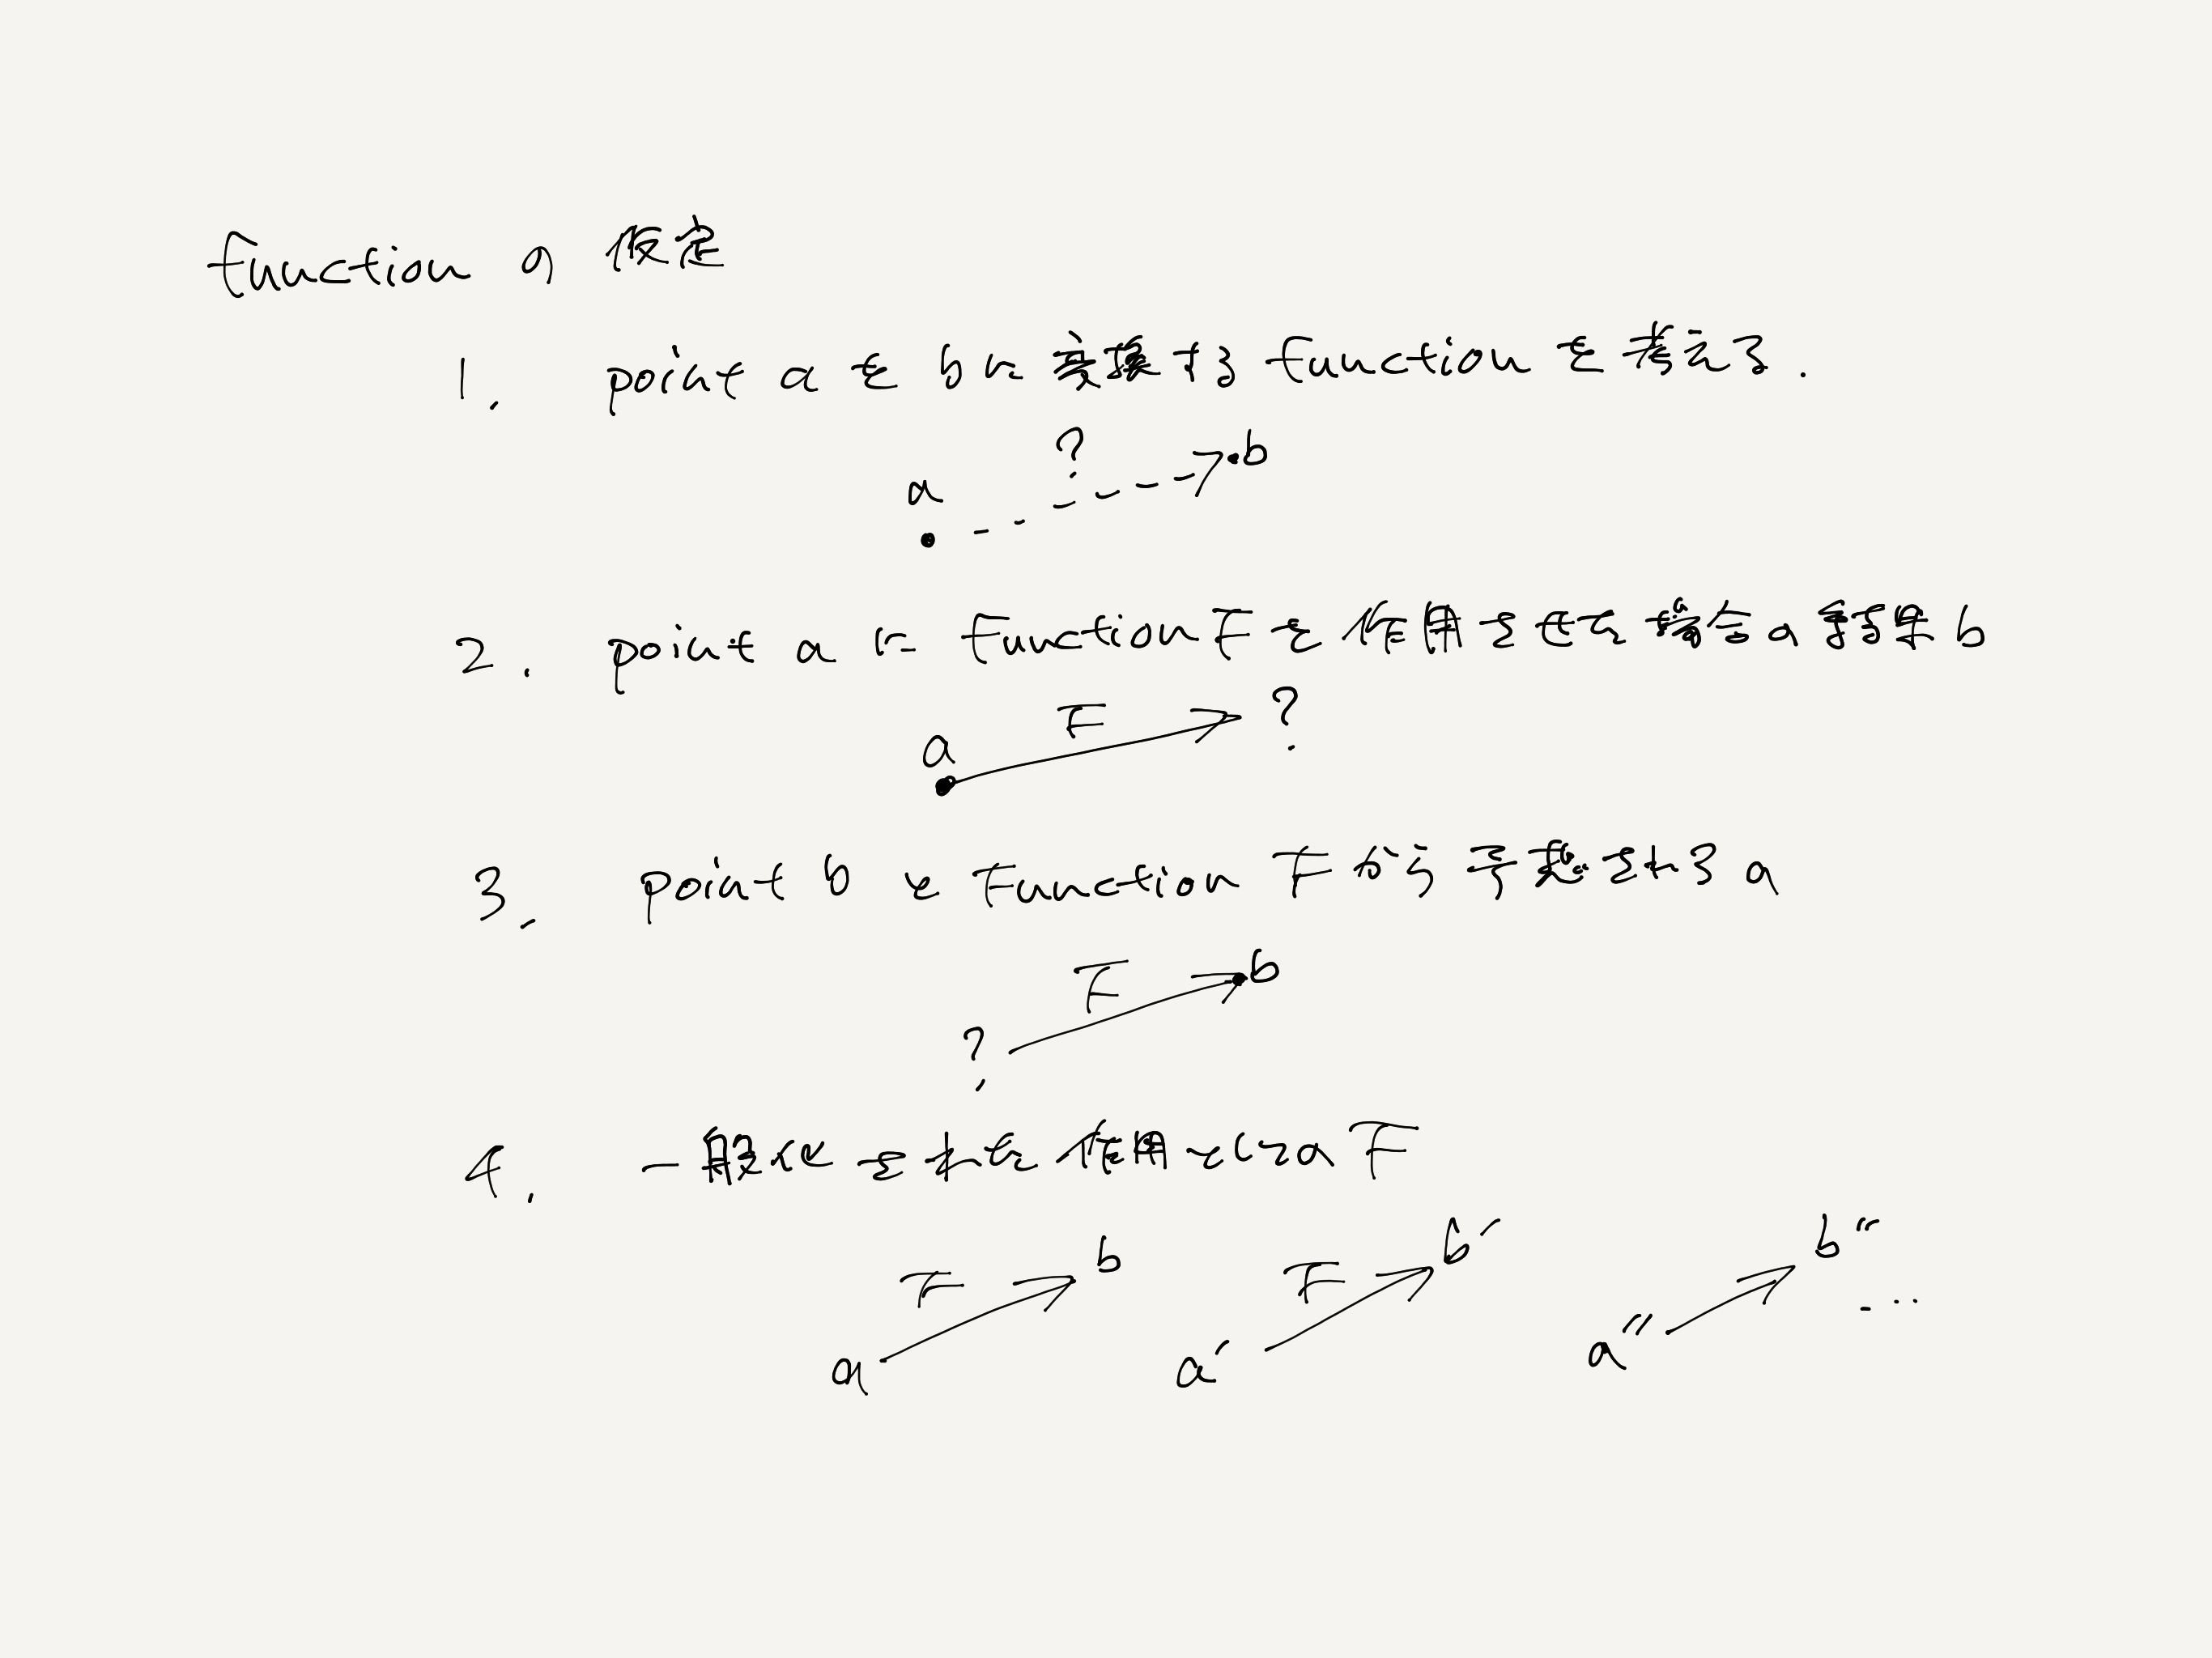 functionの仮定
1. point a を b に変換する function を考える.
?
a b
2. point a に function F を作用させた場合の結果 b
F ?
a
3. point b と Function F から予想される a
F b
?
4. 一般化された作用としての F
F b F b′ b″
a a′ a″ ...